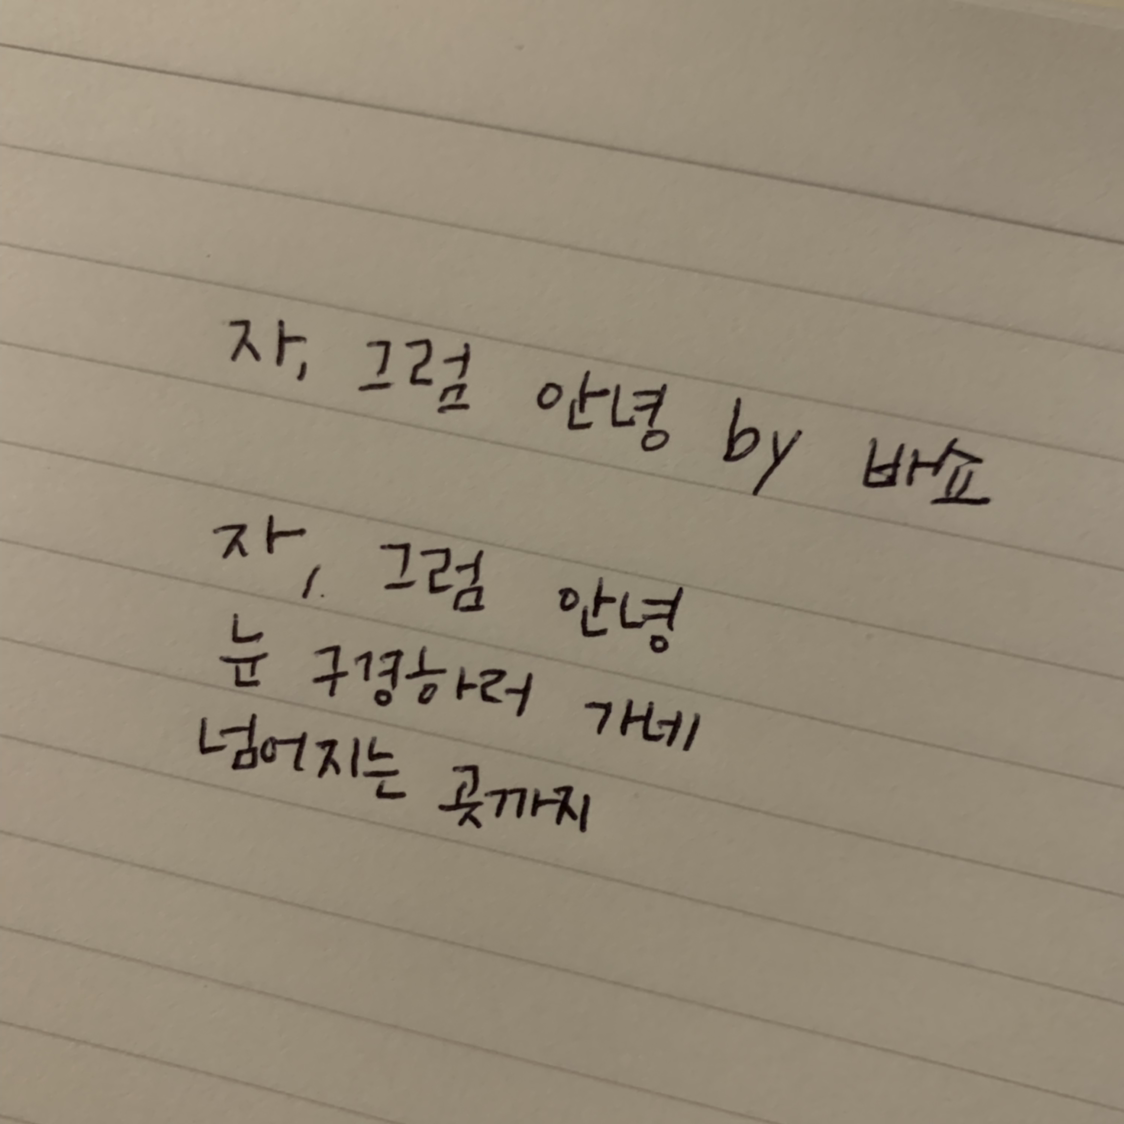 자, 그럼 안녕 by 바쇼
자, 그럼 안녕
눈 구경하러 가네
넘어지는 곳까지